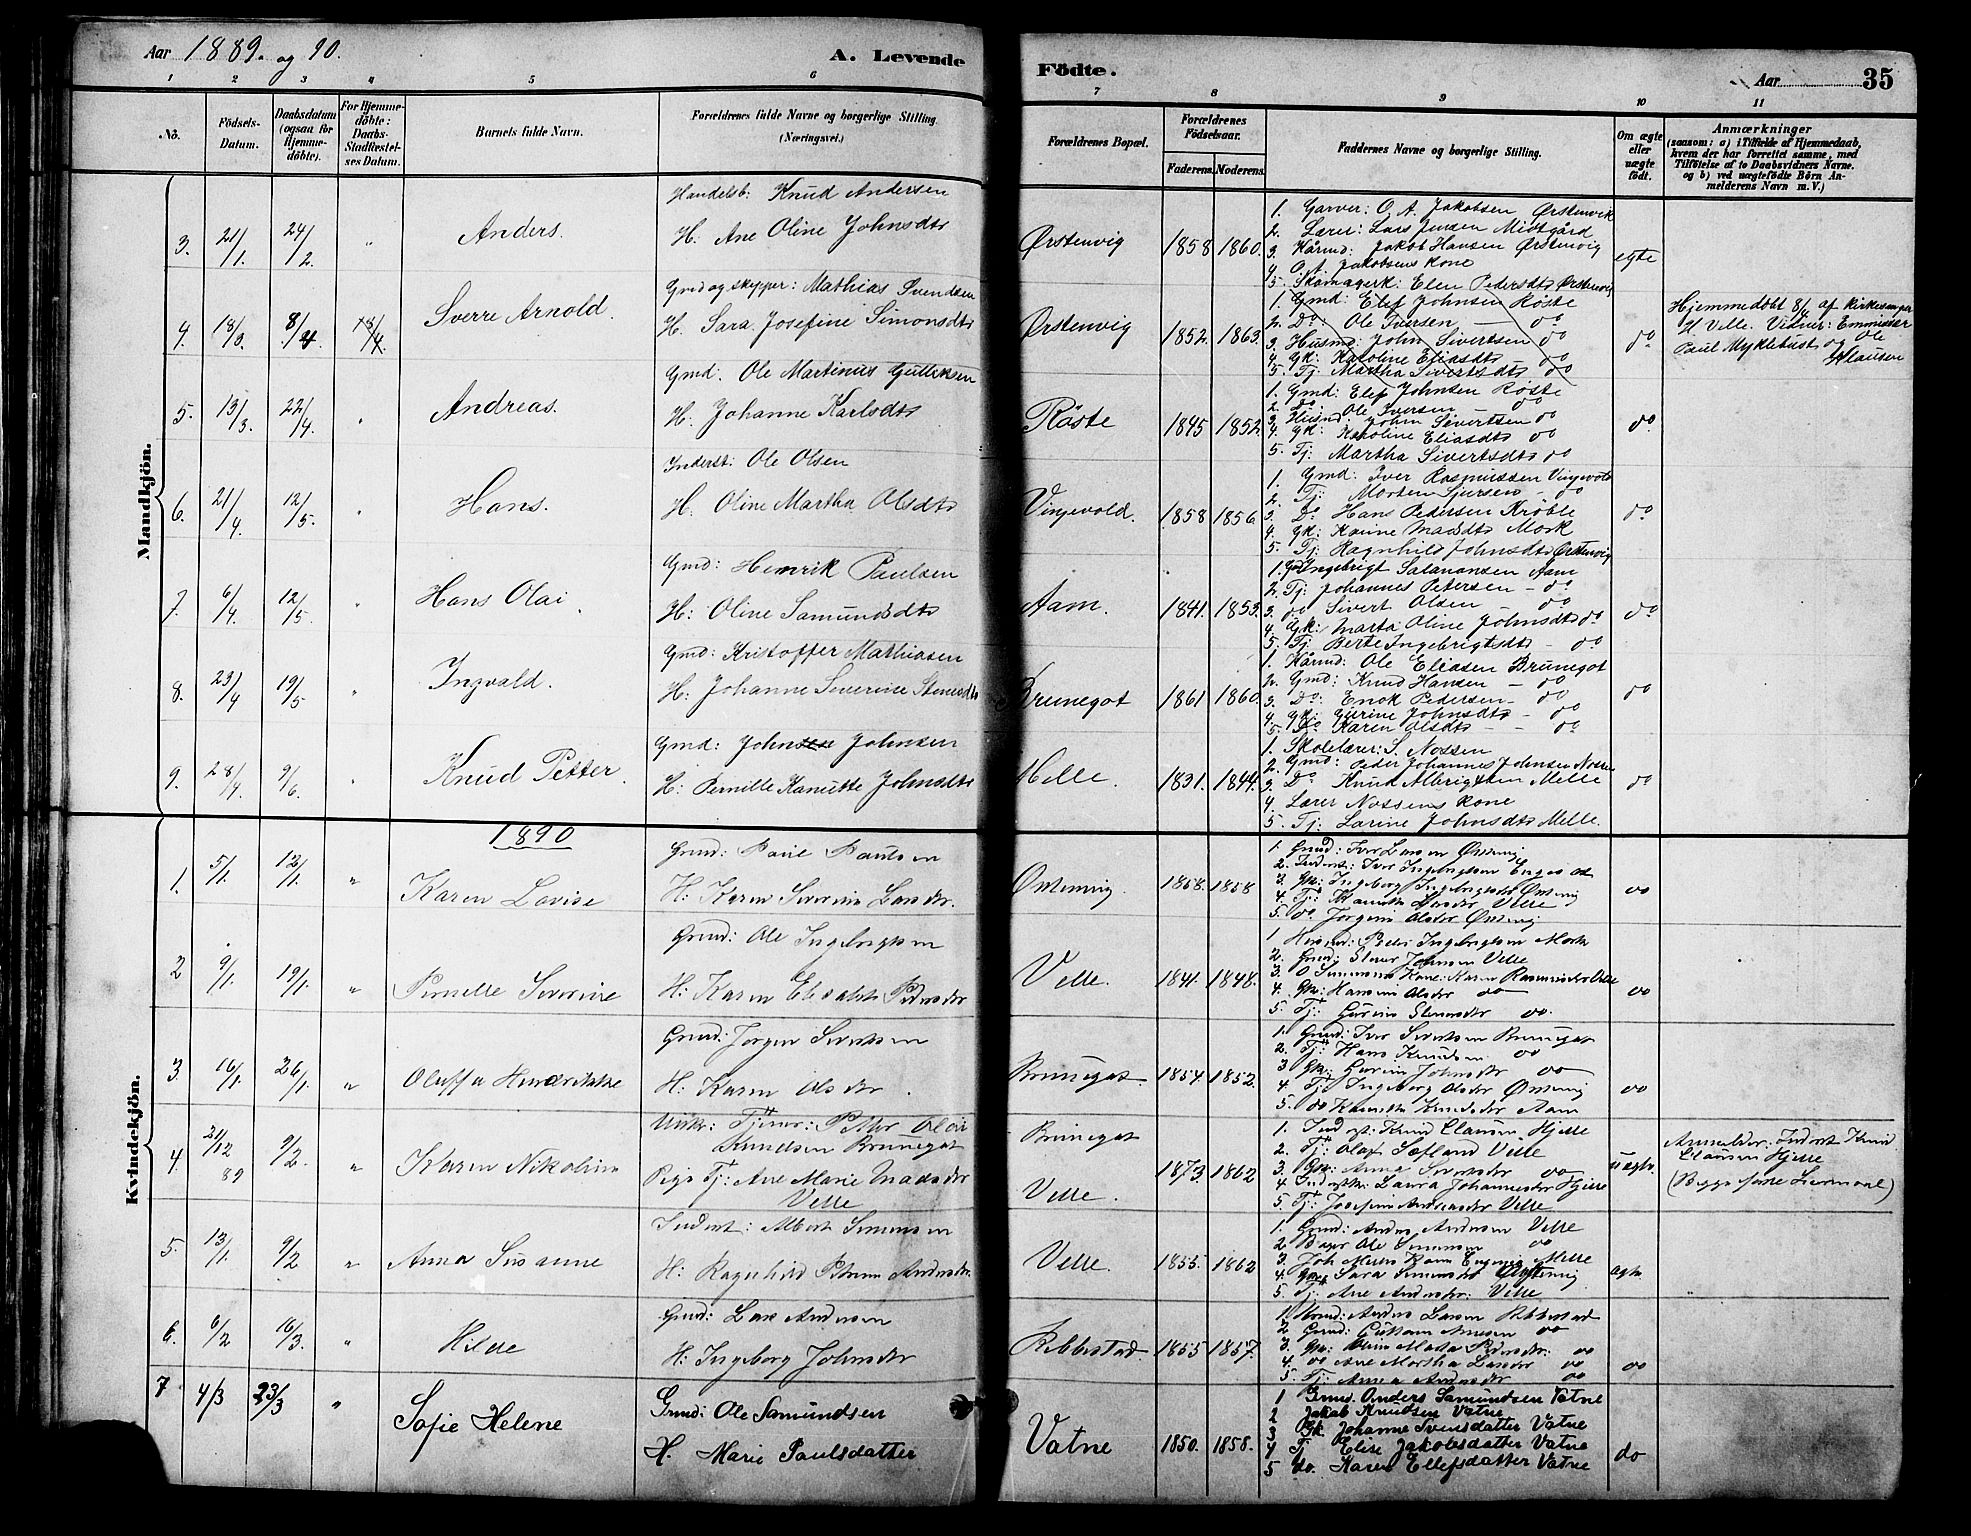 Aar 1889. og 90.
A. Levende
Födte.
Aar
35
1 2 3 4 5 6 7 8 9 10 11
No.
Födsels-Datum.
Daabsdatum (ogsaa for Hjemme-döbte).
For Hjemme-döbte: Daabs-Stadfæstel-ses Datum.
Barnets fulde Navn.
Forældrenes fulde Navne og borgerlige Stilling (Næringsvei.)
Forældrenes Bopæl.
Forældrenes Födselsaar.
Faderens. Moderens.
Faddernes Navne og borgerlige Stilling.
Om ægte eller uægte födt.
Anmærkninger
(saasom: a) i Tilfælde af Hjemmedaab, hvem der har forrettet samme, med Tilföielse af to Daabsvidners Navne. og b) ved uægtefödte Börn An-melderens Navn m. V.)
Mandkjön.
3. 21/1. 24/2. " Anders.
Handelsb: Knud Andersen
H: Ane Oline Johnsdtr
Ørstenvig 1858 1860. egte
1. Garver: O. A. Jakobsen Ørstenvik
2. Lærer: Lars Jensen Midtgård
3. Kårmd: Jakob Hansen Ørstenvig
4. O. A. Jakobsens Kone
5. Skomagerk: Elen Pedersdtr Ørstenvig
4. 18/3. 8/4 18/4 Sverre Arnold.
Gmd og skipper: Mathias Svendsen
H: Sara Josefine Simonsdtr
Ørstenvig 1852. 1863. do
1. Gmd: Elef Johnsen Röste
2. Do: Ole Iversen do
3. Husmd: John Sivertsen do
4. Gk: Karoline Eliasdtr do
5. Tj: Martha Sivertsdtr do
Hjemmedöbt 8/4 af kirkesanger
H Velle. Vidner: Emmissær
Paul Myklebust og Ole
Klausen
5. 13/3. 22/4. " Andreas.
Gmd. Ole Martinus Gulleksen
H. Johanne Karlsdtr
Röste 1845 1852. do
1. Gmd: Elef Johnsen Röste
2. Do: Ole Iversen do
3. Husmd: John Sivertsen do
4. Gk: Karoline Eliasdtr do
5. Tj: Martha Sivertsdtr do
6. 21/4. 12/5. " Hans.
Inderst: Ole Olsen
H. Oline Martha Olsdtr
Vinjevold. 1858 1856. do
1. Gmd: Iver Rasmussen Vinjevold
2. Tj: Morten Sjursen do
3. Do Hans Pedersen Kröble
4. Gk: Hanne Madsdtr Mork
5. Tj: Ragnhild Johnsdtr Ørstenvig
7. 6/4. 12/5. " Hans Olai.
Gmd: Henrik Paulsen
H: Oline Samundsdtr
Aam. 1841. 1853. do
1. Gmd Ingebrigt Salamonsen Aam
2. Tj: Johannes Petersen do
3. do Sivert Olsen do
4. Gk: Marta Oline Johnsdtr do
5. Tj: Berte Ingebrigtsdtr do
8. 23/4 19/5. " Ingvald.
Gmd: Kristoffer Mathiasen
H: Johanne Severine Stensdtr
Brunegot 1861 1860. do
1. Kårmd: Ole Eliasen Brunegot
2. Gmd: Knud Hansen do
3. Do: Enok Pedersen do
4. Gk: Gurine Johnsdtr do
5. Do Karen Olsdtr do
9. 28/4. 9/6. " Knud Petter.
Gmd: John Johnsen
H: Pernille Kanutte Johnsdtr
Melle. 1831. 1844. do
1. Skolelærer: S. Nossen
2. Gmd: Peder Johannes Johnsen Nossen
3. Do Knud Albrigtsen Melle
4. Lærer Nossens kone
5. Tj: Larine Johnsdtr Melle.
Kvindekjön.
1890
1. 5/1. 12/1. " Karen Lovise
Grmd: Paul Paulsen
H: Karen Severine Larsdtr.
Örstenvig. 1858. 1858 do
1. Grmd: Iver Larsen Örstenvig
2. Inderst: Iver Ingebrigtsen
3. Gk: Ingeborg Ingebrigtsdtr Örstenvig
5. do Jörgine Olsdtr Örstenvig
2 9/1. 19/1. " Pernille Severine
Grmd: Ole Ingebrigtsen
H: Karen Elisabeth Pedersdtr
Velle. 1841. 1848. do
1 Husmd: Peder Ingebrigtsen Mork
2. Grmd: Stener Johnsen Velle
3. O Simonsens Kone: Karen Rasmusdtr Velle
4. Gk: Hansine Olsdtr do
5. Tj: Gurine Stenersdtr do
3. 16/1. 26/1. " Oluffa Hendrikke
Grmd: Jörgen Sivertsen
H: Karen Olsdtr.
Brunegot 1854. 1852. do
1. Grmd: Iver Sivertsen Brunegot
2. Tj: Hans Knudsen do
3 Gk: Gurine Johnsdtr do
4. Tj: Ingeborg Olsdtr Örstenvig
5. do Kanutte Knudsdtr Aam
4. 21/12 89 9/2. " Karen Nikoline
Unk: Tjener: Petter Olai
Knudsen Brunegot
Pige Tj: Ane Marie Madsdtr
Velle
Brunegot
Velle. 1873. 1862 uægte.
1. Inderst: Knud Clausen Hjelle
2. Tj: Olaf Sætland Velle
3. Gk: Anna Sivertsdtr do
4. Laura Johannesdtr Hjelle
5. Tj: Josefine Andersdtr Velle
Anmelder: Inderst Knud
Clausen Hjelle
(Begges förste Leiermaal)
5. 13/1. 9/2 " Anna Susanne
Inderst: Albert Simonsen
H: Ragnhild Petrine Andersdtr
Velle. 1855. 1862 ægte
1. Grmd: Anders Andersen Velle
2. Bager Ole Simonsen do
4. Gk: Sara Simonsdtr Örstenvig
5. Tj: Ane Andersdtr: Velle
6. 6/2 16/3. " Hilde
Grmd: Lars Andersen
H: Ingeborg Johnsdtr
Rebbestad. 1855 1857. do
1. Grmd: Anders Larsen Rebbestad
2 Grmd: do
3. Gk: Oline Marta Pedersdtr: do
4. do Ane Martha Larsdtr do
5. Tj: Anna Andersdtr do
7 4/3 23/3 " Sofie Helene
Grmd: Ole Samundsen
H. Marie Paulsdatter
Vatne 1850. 1858. do
1 Grmd. Anders Samundsen Vatne
2 Jakob Knudsen Vatne
3 Gk. Johanne Svensdatter Vatne
4 Tj Elise Jakobsdatter Vatne
5 do. Karen Ellefsdatter Vatne